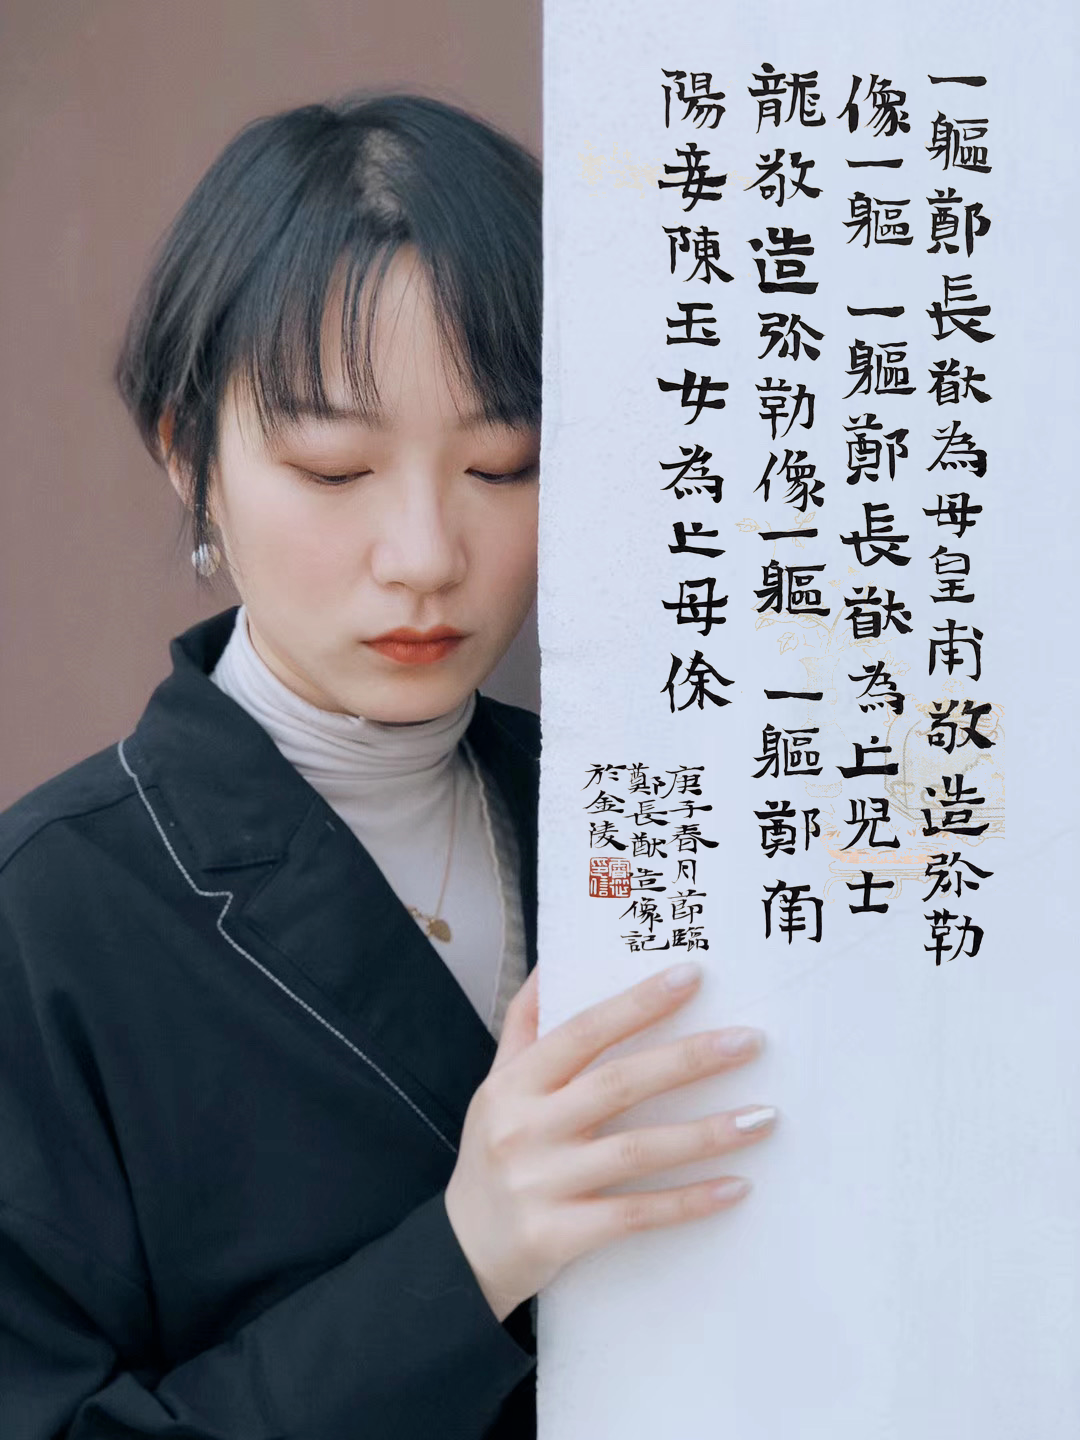 一軀鄭長猷為母皇甫敬造弥勒
像一軀 一軀鄭長猷為亡児士
龍敬造弥勒像一軀 一軀鄭南
陽妾陳玉女為亡母徐
庚子春月節臨
鄭長猷造像記
於金陵